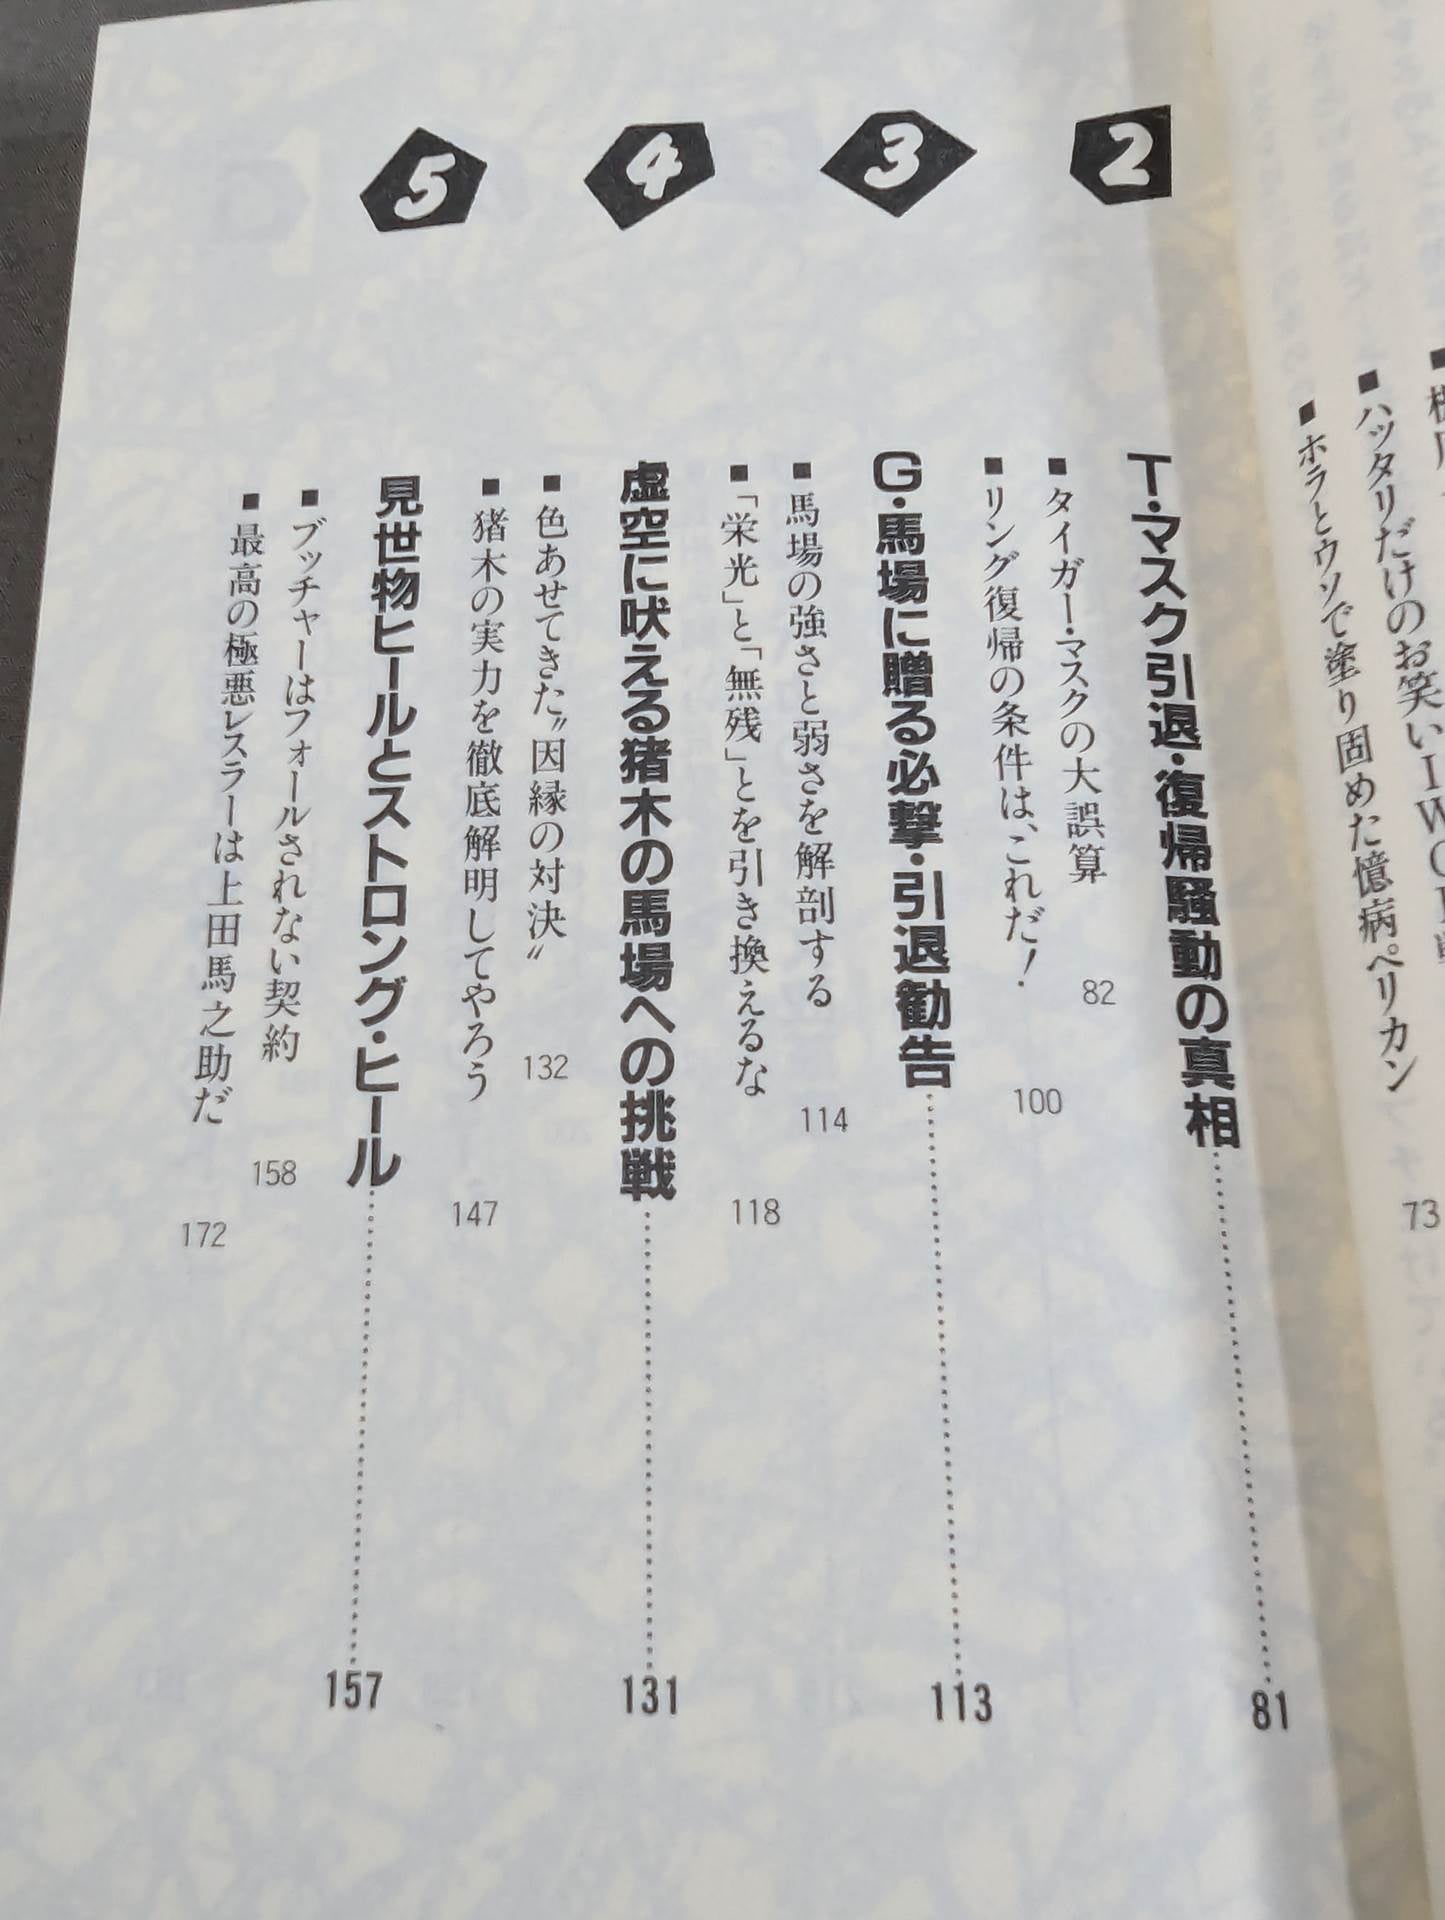 ■ハッタリだけのお笑いIWGP
■ホラとウソで塗り固めた憶病ペリカン
73
2
T・マスク引退・復帰騒動の真相
81
■タイガー・マスクの大誤算
82
■リング復帰の条件は、これだ!
100
3
G・馬場に贈る必撃・引退勧告
113
■馬場の強さと弱さを解剖する
114
■「栄光」と「無残」とを引き換えるな
118
4
虚空に吠える猪木の馬場への挑戦
131
■色あせてきた〝因縁の対決〟
132
■猪木の実力を徹底解明してやろう
147
5
見世物ヒールとストロング・ヒール
157
■ブッチャーはフォールされない契約
158
■最高の極悪レスラーは上田馬之助だ
172